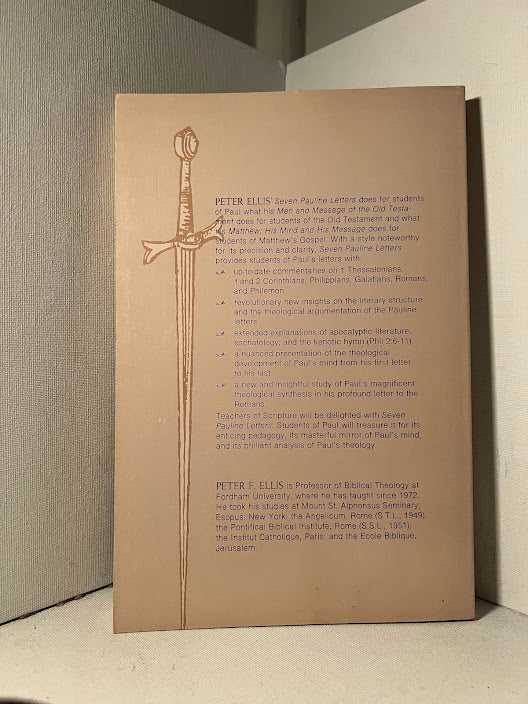 PETER ELLIS' Seven Pauline Letters does for students
of Paul what his Men and Message of the Old Testa-
ment does for students of the Old Testament and what
his Matthew: His Mind and His Message does for
students of Matthew's Gospel. With a style noteworthy
for its precision and clarity, Seven Pauline Letters
provides students of Paul's letters with:
up-to-date commentaries on 1 Thessalonians,
1 and 2 Corinthians, Philippians, Galatians, Romans,
and Philemon
revolutionary new insights on the literary structure
and the theological argumentation of the Pauline
letters
extended explanations of apocalyptic literature,
eschatology, and the kenotic hymn (Phil 2:6-11)
a nuanced presentation of the theological
development of Paul's mind from his first letter
to his last
a new and insightful study of Paul's magnificent
theological synthesis in his profound letter to the
Romans
Teachers of Scripture will be delighted with Seven
Pauline Letters. Students of Paul will treasure it for its
enticing pedagogy, its masterful mirror of Paul's mind,
and its brilliant analysis of Paul's theology.
PETER F. ELLIS is Professor of Biblical Theology at
Fordham University, where he has taught since 1972.
He took his studies at Mount St. Alphonsus Seminary,
Esopus, New York; the Angelicum, Rome (S.T.L., 1949);
the Pontifical Biblical Institute, Rome (S.S.L., 1951);
the Institut Catholique, Paris; and the Ecole Biblique,
Jerusalem.